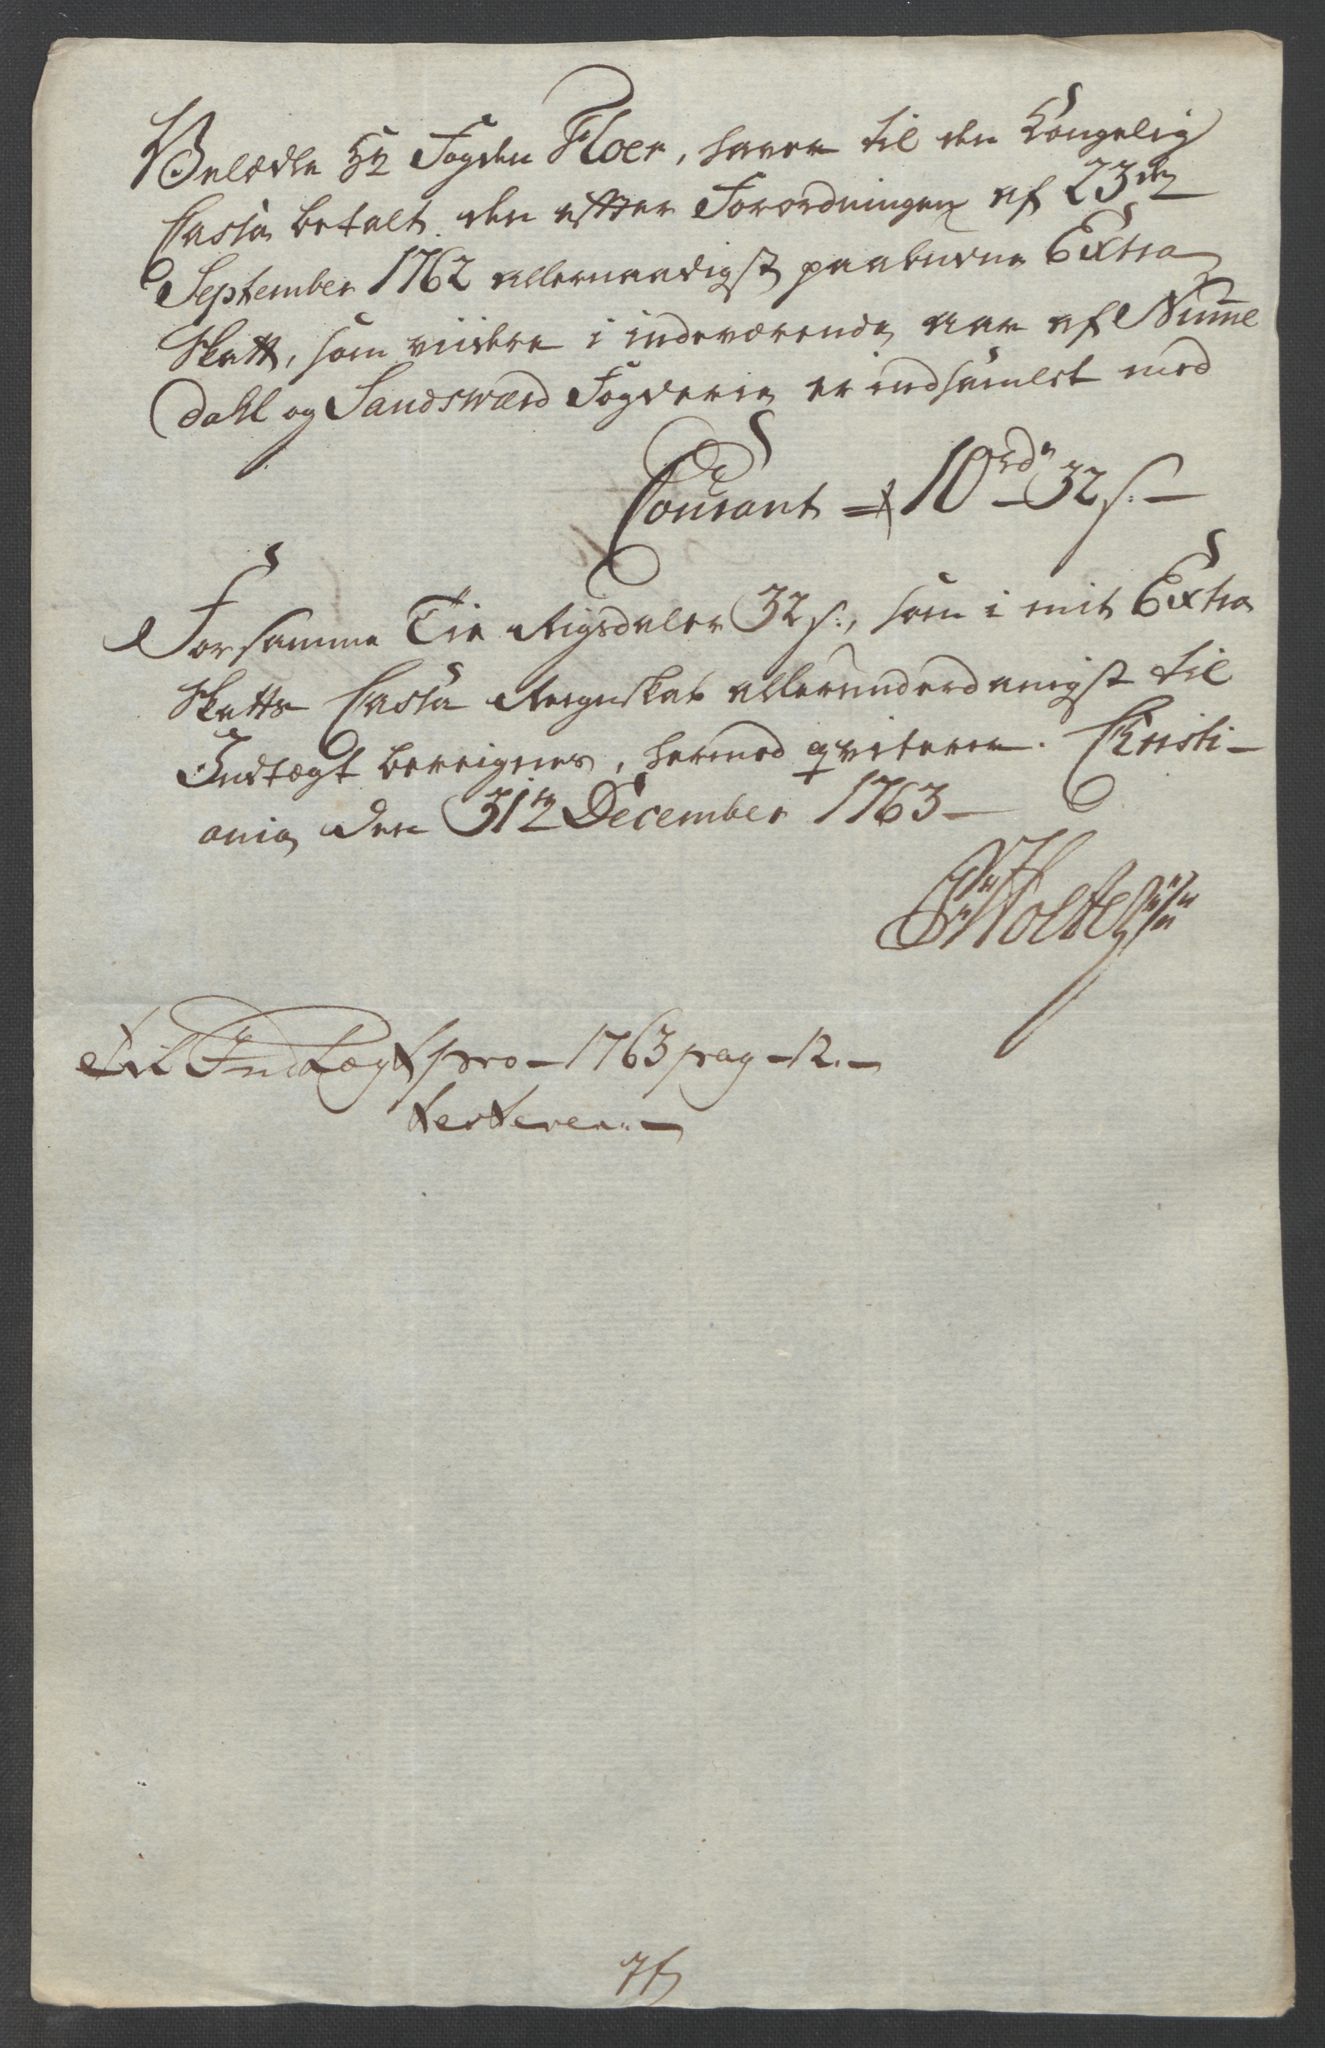 Velædle Hr Fogden Floer, haver til den Kongelig
Cassa betalt den efter Forordningen af 23de
September 1762 allernaadigst paabudne Extra
Skatt, som viidere i indeværende aar af Numme
dahl og Sandsværd Fogderie er indsamlet med
Courant 10 rd 32 s.
For samme Tie Rigsdaler 32 s., som i mit Extra
Skatts Cassa Reignskab allerunderdanigst til
Indtægt bereignes, hermed qviteres. Christi-
ania den 31te December 1763
Holte
Til Indtægt pro 1763 pag 12.
testerer